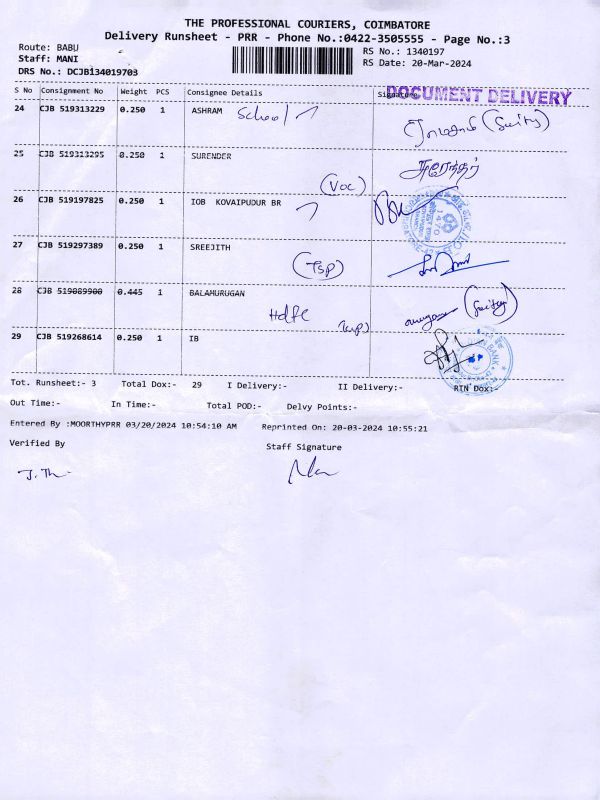 THE PROFESSIONAL COURIERS, COIMBATORE
Delivery Runsheet - PRR - Phone No.:0422-3505555 - Page No.:3
Route: BABU RS No.: 1340197
Staff: MANI RS Date: 20-Mar-2024
DRS No.: DCJB134019703
S No Consignment No Weight PCS Consignee Details Signature DOCUMENT DELIVERY
24 CJB 519313229 0.250 1 ASHRAM School
25 CJB 519313295 0.250 1 SURENDER சுரேந்தர்
(Voc)
26 CJB 519197825 0.250 1 IOB KOVAIPUDUR BR
27 CJB 519297389 0.250 1 SREEJITH
(Tsp)
28 CJB 519089900 0.445 1 BALAMURUGAN
Hdfc
29 CJB 519268614 0.250 1 IB
Tot. Runsheet:- 3 Total Dox:- 29 I Delivery:- II Delivery:- RTN Dox:-
Out Time:- In Time:- Total POD:- Delvy Points:-
Entered By :MOORTHYPRR 03/20/2024 10:54:10 AM Reprinted On: 20-03-2024 10:55:21
Verified By Staff Signature